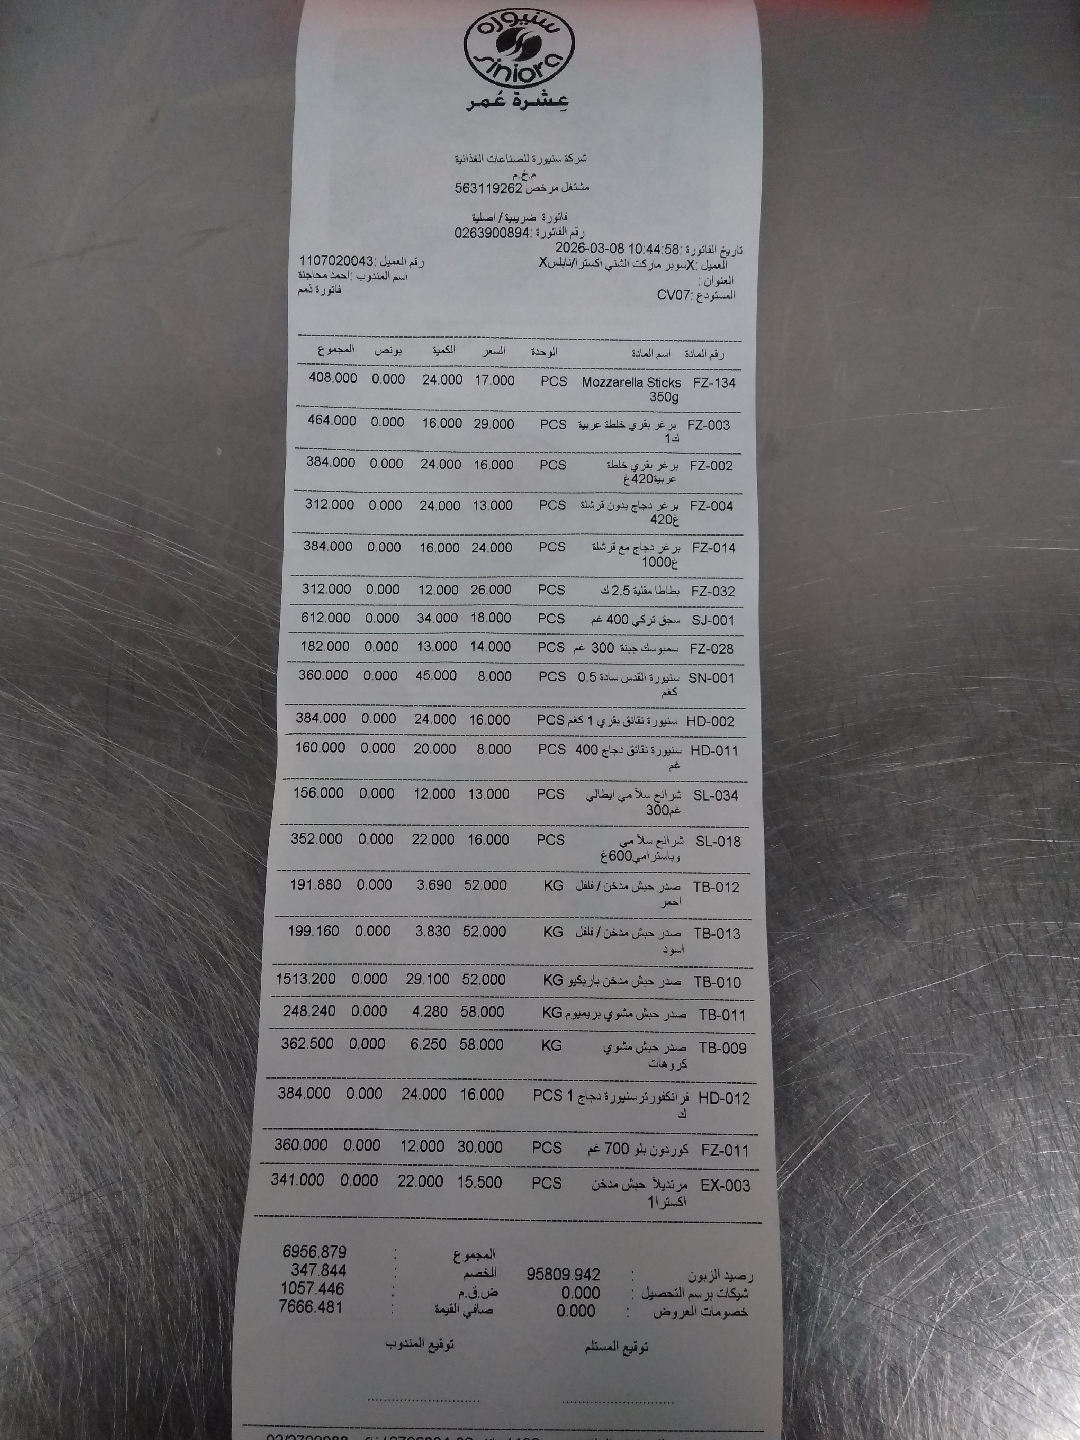 سنيورة
siniora
عِشرة عُمر
شركة سنيورة للصناعات الغذائية
م.خ.م
مشتغل مرخص 563119262
فاتورة ضريبية / اصلية
رقم الفاتورة :0263900894
تاريخ الفاتورة :2026-03-08 10:44:58
العميل :Xسوبر ماركت الشني اكسترا/نابلسX رقم العميل :1107020043
العنوان : اسم المندوب :احمد محاجنة
المستودع :CV07 فاتورة ذمم
رقم المادة اسم المادة الوحدة السعر الكمية بونص المجموع
FZ-134 Mozzarella Sticks PCS 17.000 24.000 0.000 408.000
350g
FZ-003 برغر بقري خلطة عربية PCS 29.000 16.000 0.000 464.000
1ك
FZ-002 برغر بقري خلطة PCS 16.000 24.000 0.000 384.000
عربية420غ
FZ-004 برغر دجاج بدون قرشلة PCS 13.000 24.000 0.000 312.000
420غ
FZ-014 برغر دجاج مع قرشلة PCS 24.000 16.000 0.000 384.000
1000غ
FZ-032 بطاطا مقلية 2.5 ك PCS 26.000 12.000 0.000 312.000
SJ-001 سجق تركي 400 غم PCS 18.000 34.000 0.000 612.000
FZ-028 سمبوسك جبنة 300 غم PCS 14.000 13.000 0.000 182.000
SN-001 سنيورة القدس سادة 0.5 PCS 8.000 45.000 0.000 360.000
كغم
HD-002 سنيورة نقانق بقري 1 كغم PCS 16.000 24.000 0.000 384.000
HD-011 سنيورة نقانق دجاج 400 PCS 8.000 20.000 0.000 160.000
غم
SL-034 شرائح سلامي ايطالي PCS 13.000 12.000 0.000 156.000
300غم
SL-018 شرائح سلامي PCS 16.000 22.000 0.000 352.000
وباسترامي600غ
TB-012 صدر حبش مدخن / فلفل KG 52.000 3.690 0.000 191.880
احمر
TB-013 صدر حبش مدخن / فلفل KG 52.000 3.830 0.000 199.160
اسود
TB-010 صدر حبش مدخن باربكيو KG 52.000 29.100 0.000 1513.200
TB-011 صدر حبش مشوي بريميوم KG 58.000 4.280 0.000 248.240
TB-009 صدر حبش مشوي KG 58.000 6.250 0.000 362.500
كروهات
HD-012 فرانكفورترسنيورة دجاج 1 PCS 16.000 24.000 0.000 384.000
ك
FZ-011 كوردون بلو 700 غم PCS 30.000 12.000 0.000 360.000
EX-003 مرتديلا حبش مدخن PCS 15.500 22.000 0.000 341.000
اكسترا1
المجموع : 6956.879
رصيد الزبون : 95809.942 الخصم : 347.844
شيكات برسم التحصيل : 0.000 ض.ق.م : 1057.446
خصومات العروض : 0.000 صافي القيمة : 7666.481
توقيع المستلم توقيع المندوب